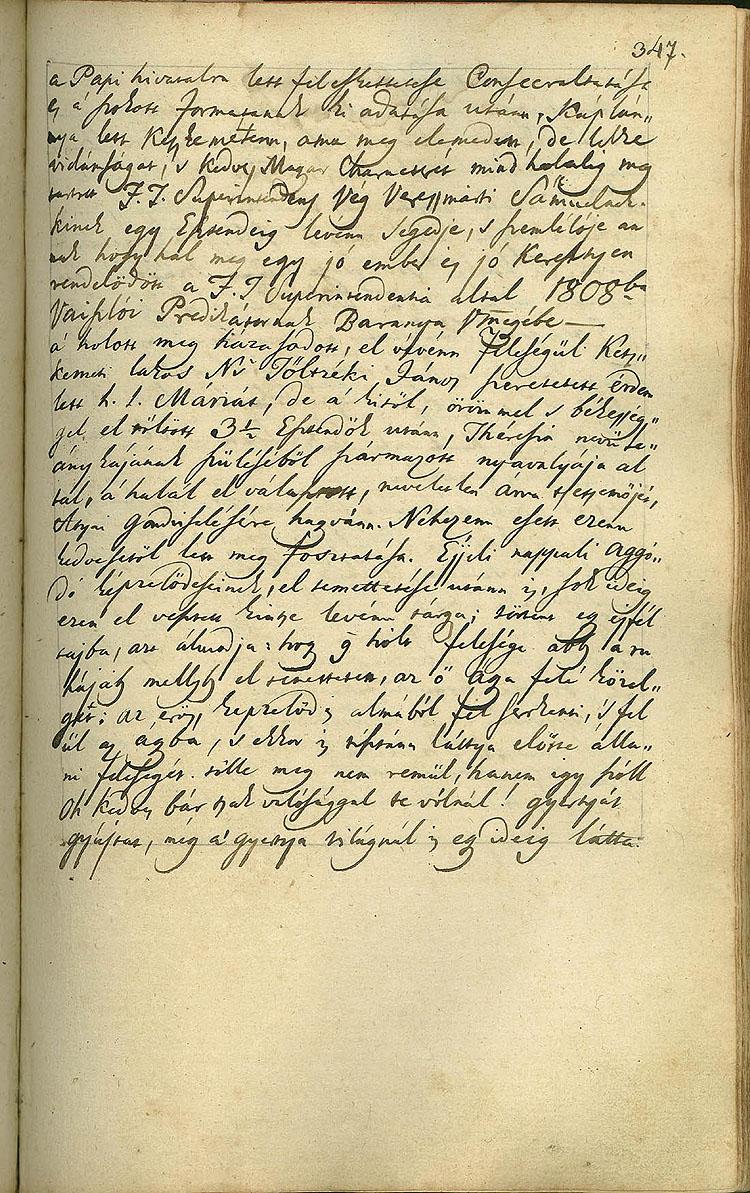 347.
a Papi hivatalra lett fel eskettetése Consecraltatása
és a szokott Formatanak ki adatása utánn, Káplán„
nya lett Ketskemétenn, ama meg elemedett, de lelke
vidámságát, 's kedves Magyar Characterét mind halálig meg
tartott F. T. Superintendens Vég Veresmarti Sámuelnek.
kinek egy Esztendeig levénn Segedje, s szemlélője an
nak hogy hal meg egy jó ember és jó Keresztyen
rendelődött a F. T. Superintendentia által 1808ba
Vaiszlói Prédikátornak Baranya Vmegébe —
a' holott meg házasodott, el vévénn Feleségül Kets„
keméti lakos Ns Töltszéki János szeretetett érdem
lett h. l. Máriát, de a' kitől, örömmel s békesség„
gel el töltött 3½ Esztendők utánn, Thérésia nevű le„
ánykájának szüléséből származott nyavalyája ál
tal, a' halál el választott, neveletlen árva tsetsemőjét,
Atyai gondviselésére hagyvánn. Nehezenn esett ezenn
kedvesétől lett meg fosztatása. Éjjeli nappali aggó„
dó képzelődéseinek, el temettetése utánn is, sok ideig
ezen el vesztett kintse levénn tárgya; történt egy éjfél
tájba, azt álmodja: hogy ő holt felesége abb a ru
hájáb mellyb el temettetett, az ő ága felé közel„
gát: az erős képzelődés álmából fel serkenti, 's fel
ül az ágyba, s ekkor is tisztánn láttya előtte álla„
ni feleségét. tőlle meg nem rémül, hanem így szóll
Oh kedves bár tsak valósággal te vólnál! gyertyát
gyújtat, még a' gyertya világnál is egy ideig látta.